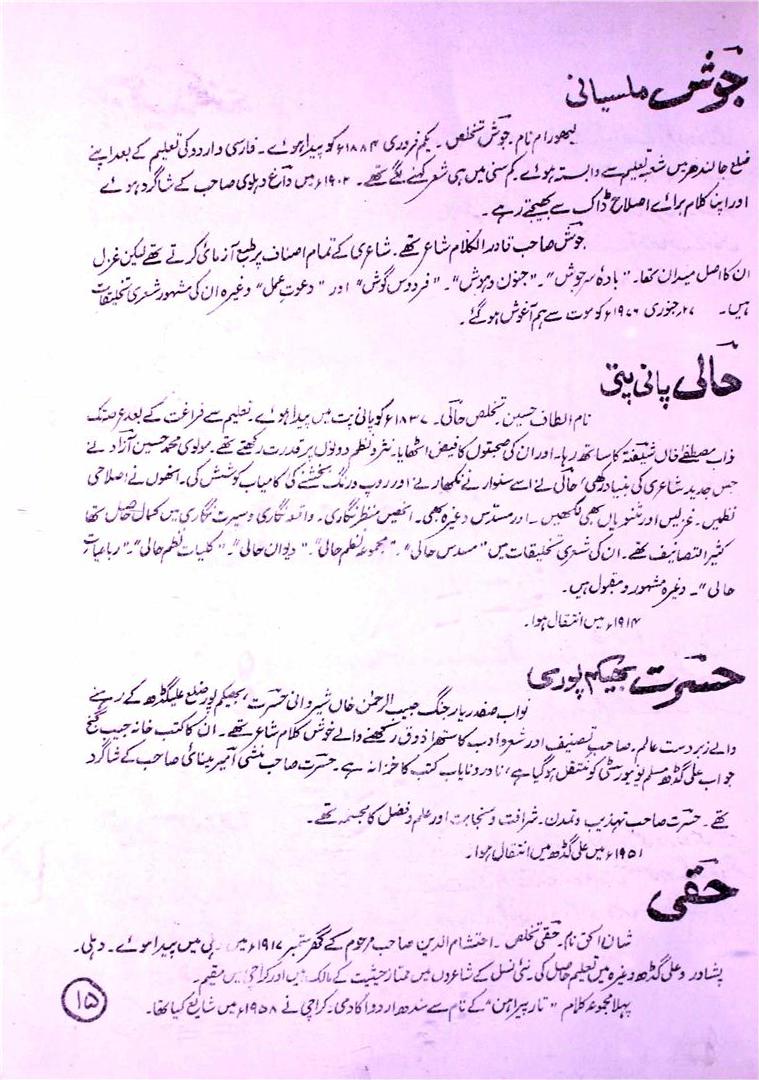 جوش ملسیانی
لبھورام نام۔ جوش تخلص۔ یکم فروری ۱۸۸۴ء کو پیدا ہوے۔ فارسی و اردو کی تعلیم کے بعد اپنے
ضلع جالندھر میں شعبہ تعلیم سے وابستہ ہوے۔ کم سنی میں ہی شعر کہنے لگے تھے۔ ۱۹۰۲ء میں داغ دہلوی صاحب کے شاگرد ہوے
اور اپنا کلام براے اصلاح ڈاک سے بھیجتے رہے۔
جوش صاحب قادر الکلام شاعر تھے۔ شاعری کے تمام اصناف پر طبع آزمائی کرتے تھے لیکن غزل
ان کا اصل میدان تھا۔ "بادۂ سرجوش"۔ "جنون و ہوش"۔ "فردوس گوش" اور "دعوتِ عمل" وغیرہ ان کی مشہور شعری تخلیقات
ہیں۔ ۲۷؍ جنوری ۱۹۷۶ء کو موت سے ہم آغوش ہو گئے۔
حالی پانی پتی
نام الطاف حسین۔ تخلص حالی۔ ۱۸۳۷ء کو پانی پت میں پیدا ہوے۔ تعلیم سے فراغت کے بعد عرصہ تک
نواب مصطفےٰ خاں شیفتہ کا ساتھ رہا۔ اور ان کی صحبتوں کا فیض اٹھایا۔ نثر و نظم دونوں پر قدرت رکھتے تھے۔ مولوی محمد حسین آزاد نے
جس جدید شاعری کی بنیاد رکھی، حالی نے اسے سنوارنے نکھارنے اور روپ و رنگ بخشنے کی کامیاب کوشش کی۔ انھوں نے اصلاحی
نظمیں۔ غزلیں اور مثنویاں بھی لکھیں۔ اور مسدس وغیرہ بھی۔ انھیں منظر نگاری۔ واقعہ نگاری و سیرت نگاری میں کمال حاصل تھا
کثیر التصانیف تھے۔ ان کی شعری تخلیقات میں "مسدس حالی"۔ "مجموعہ نظم حالی"۔ "دیوان حالی"۔ "کلیات نظم حالی"۔ "رباعیات
حالی"۔ وغیرہ مشہور و مقبول ہیں۔
۱۹۱۴ء میں انتقال ہوا۔
حسرت بھیکم پوری
نواب صفدر یار جنگ حبیب الرحمٰن خاں شیروانی حسرت، بھیکم پور ضلع علیگڈھ کے رہنے
والے زبردست عالم۔ صاحبِ تصنیف اور شعر و ادب کا ستھرا ذوق رکھنے والے خوش کلام شاعر تھے۔ ان کا کتب خانہ حبیب گنج
جو اب علی گڈھ مسلم یونیورسٹی کو منتقل ہو گیا ہے، نادر و نایاب کتب کا خزانہ ہے۔ حسرت صاحب منشی امیر مینائی صاحب کے شاگرد
تھے۔ حسرت صاحب تہذیب و تمدن۔ شرافت و نجابت اور علم و فضل کا مجسمہ تھے۔
۱۹۵۱ء میں علی گڈھ میں انتقال ہوا۔
حقی
شان الحق نام۔ حقی تخلص۔ احتشام الدین صاحب مرحوم کے گھر ستمبر ۱۹۱۷ء میں دہلی میں پیدا ہوے۔ دہلی۔
پشاور و علی گڈھ وغیرہ میں تعلیم حاصل کی۔ نئی نسل کے شاعروں میں ممتاز حیثیت کے مالک ہیں اور کراچی میں مقیم۔
پہلا مجموعہ کلام "تار پیراہن" کے نام سے سندھ اردو اکادمی۔ کراچی نے ۱۹۵۸ء میں شایع کیا تھا۔
۱۵